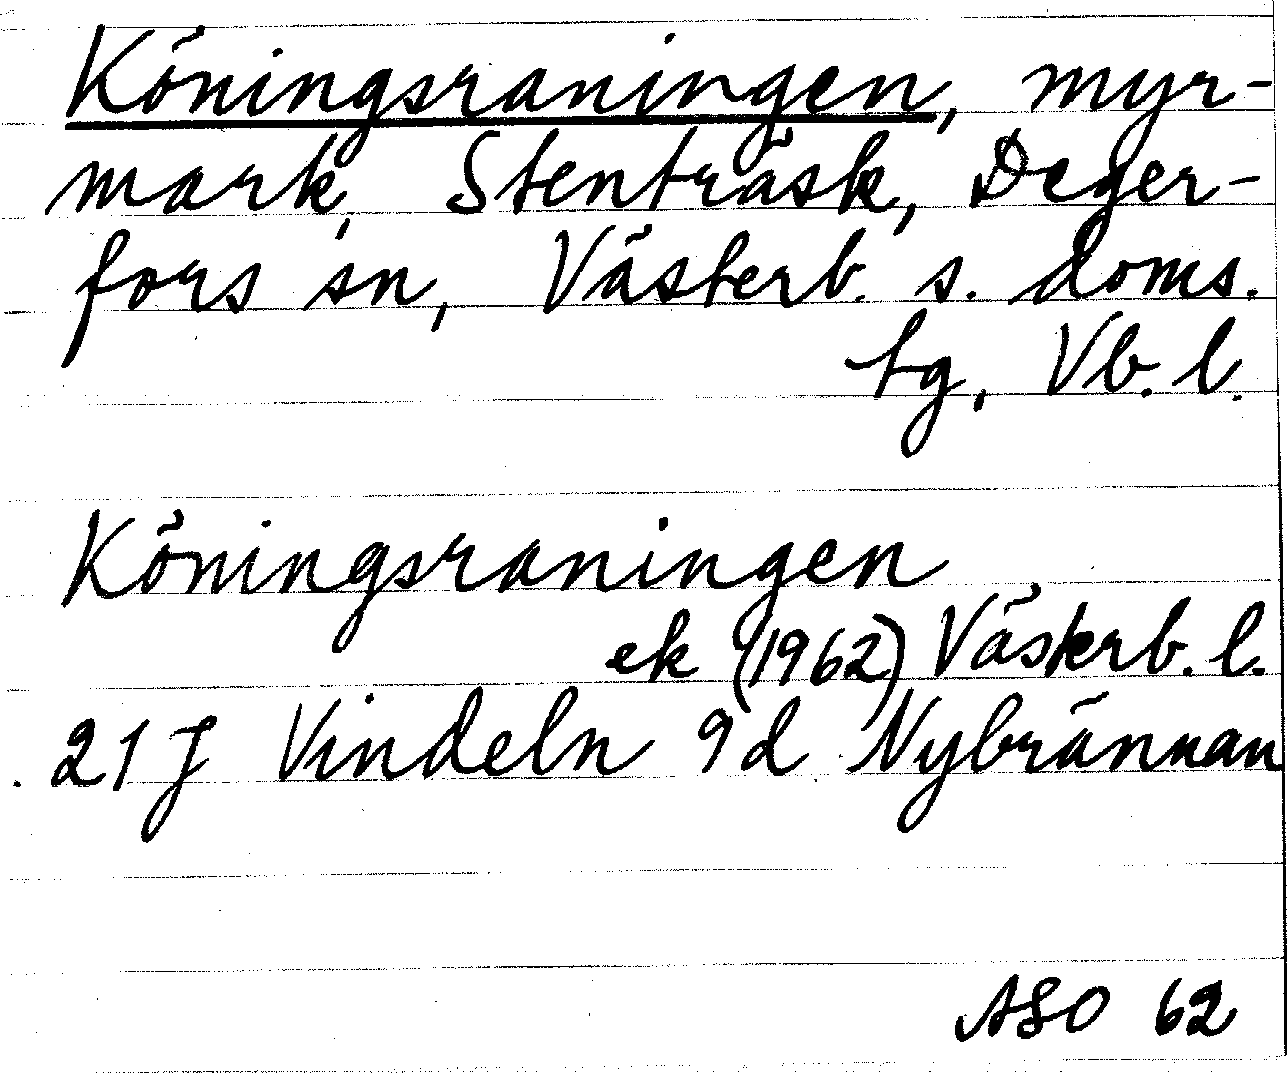 Köningsraningen, myr-
mark, Stenträsk, Deger-
fors sn, Västerb. s. doms.
tg, Vb. l.
Köningsraningen
ek (1962) Västerb. l.
21 J Vindeln 9d Nybrännan
ASO 62